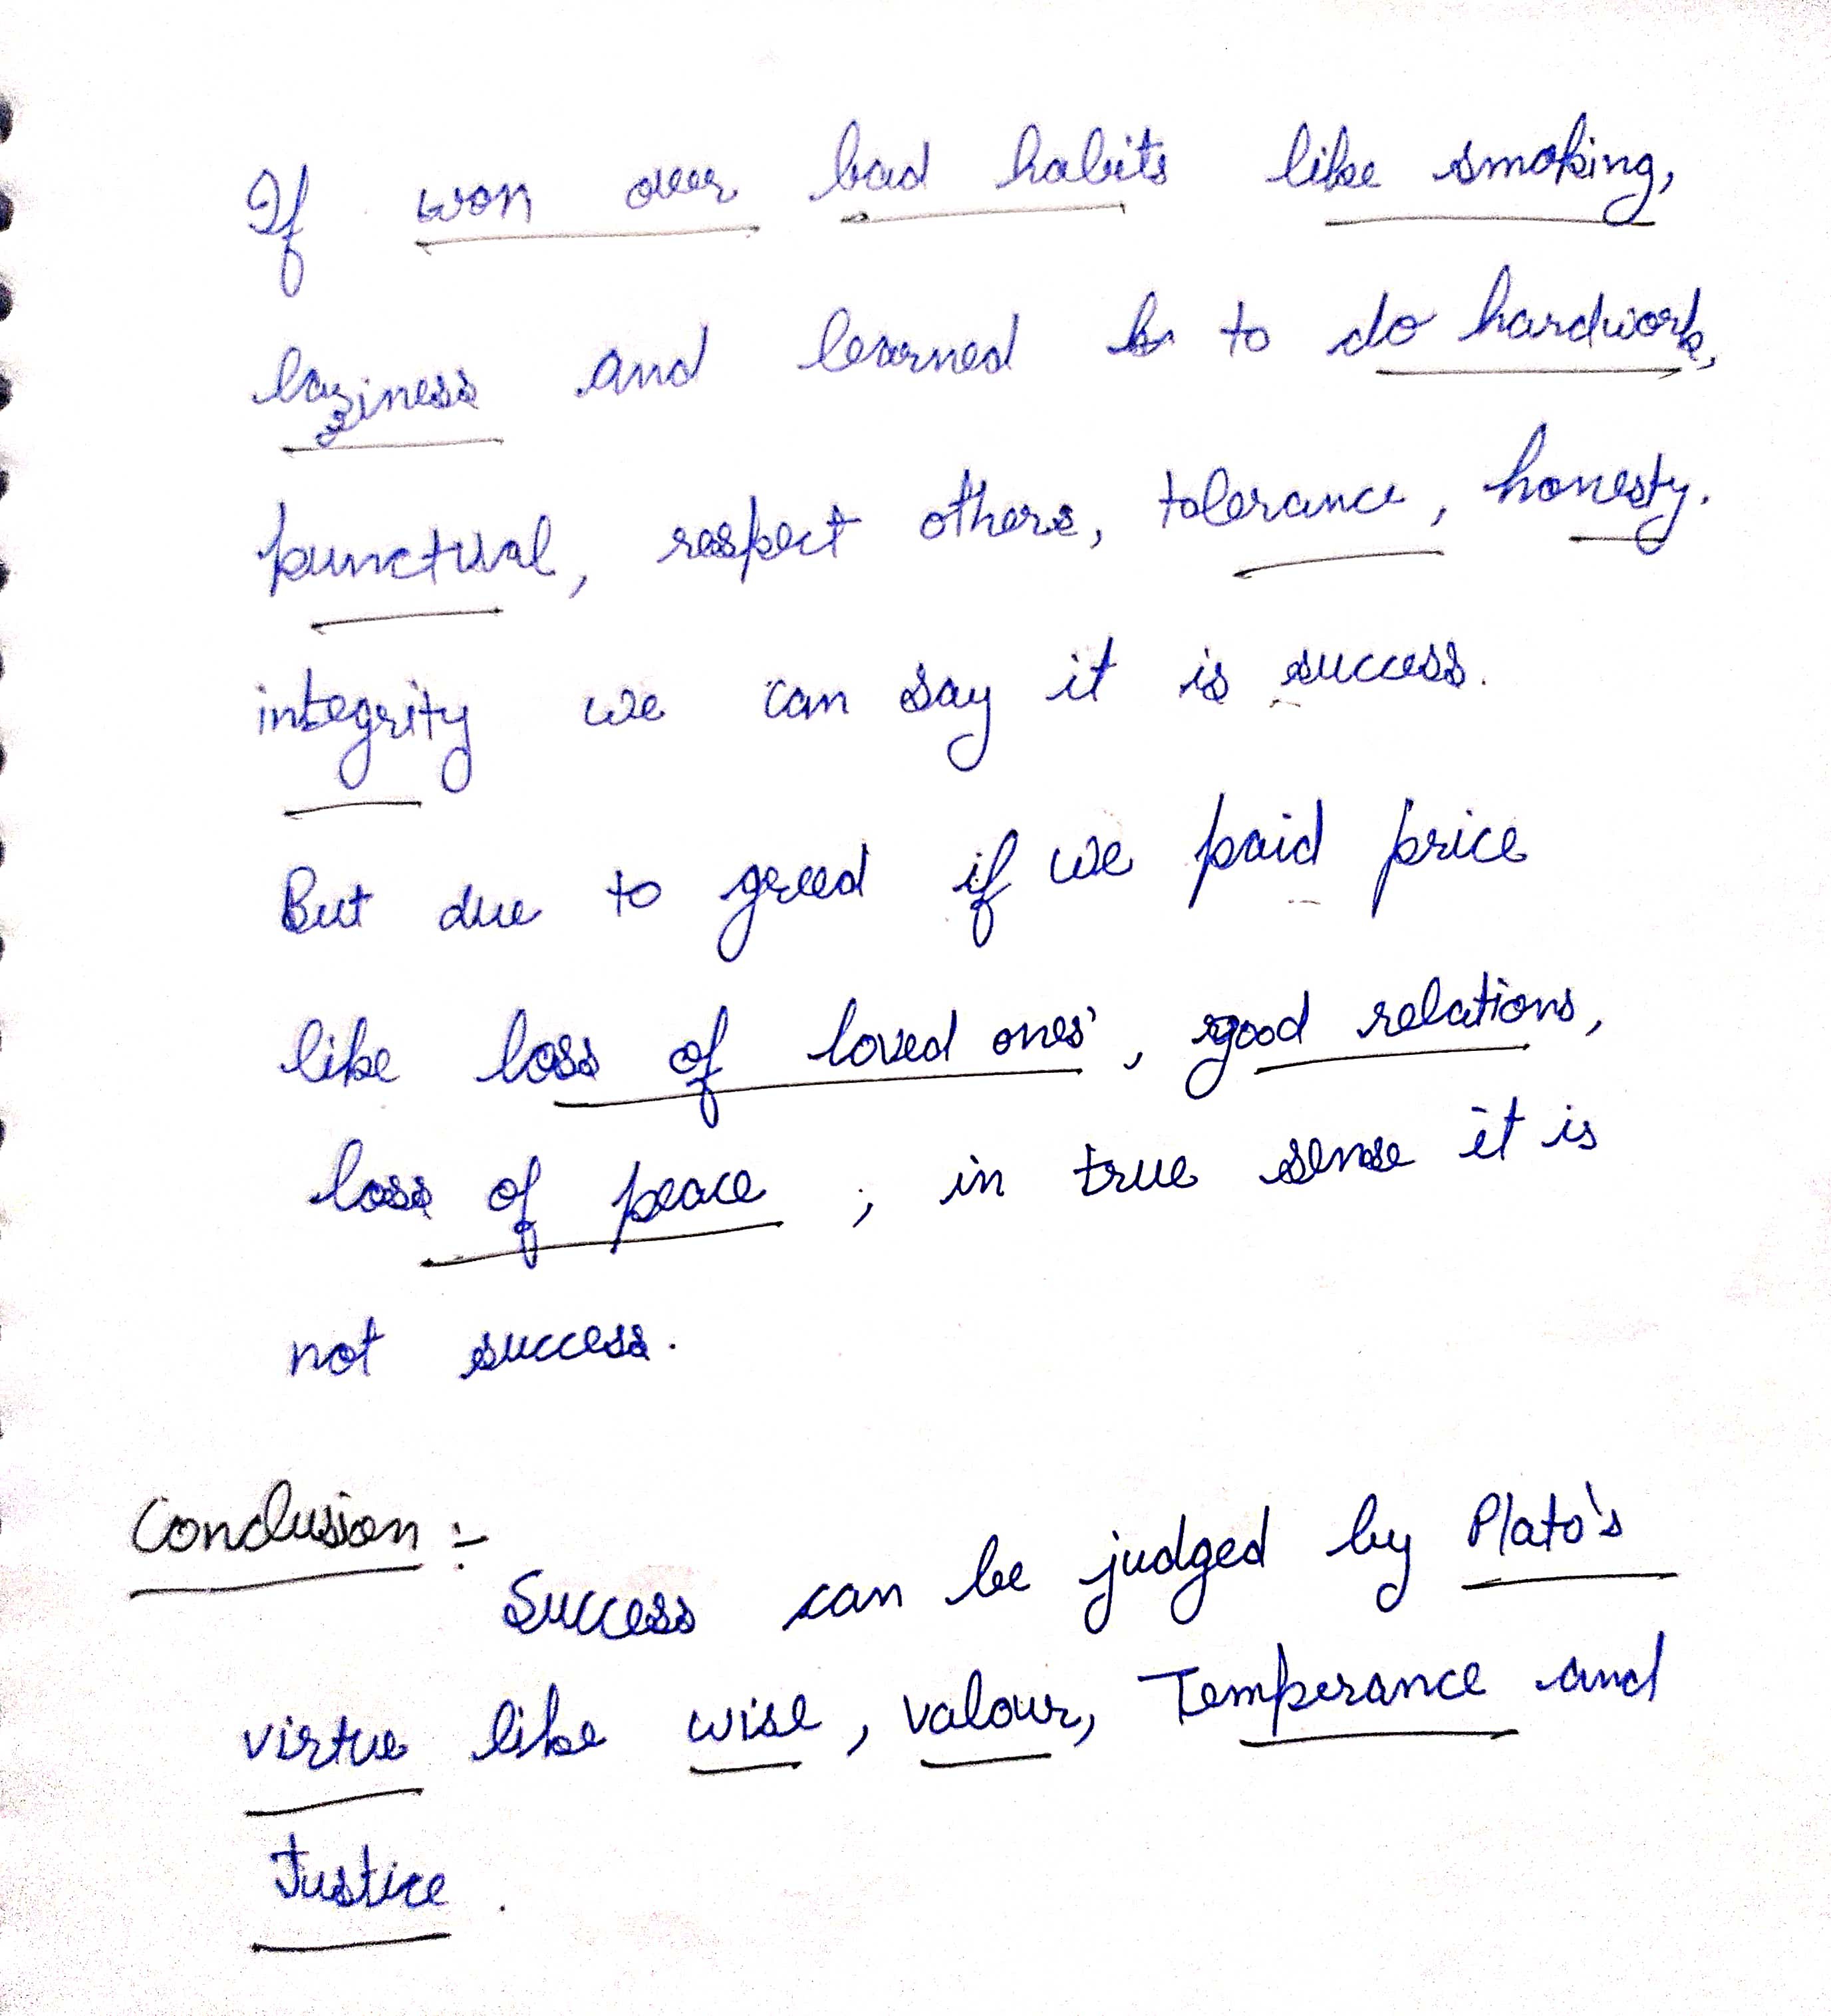 If won over bad habits like smoking,
laziness and learned to do hardwork,
punctual, respect others, tolerance, honesty.
integrity we can say it is success.
But due to greed if we paid price
like loss of loved ones', good relations,
loss of peace , in true sense it is
not success.
Conclusion :-
Success can be judged by Plato's
virtue like wise, valour, Temperance and
Justice.